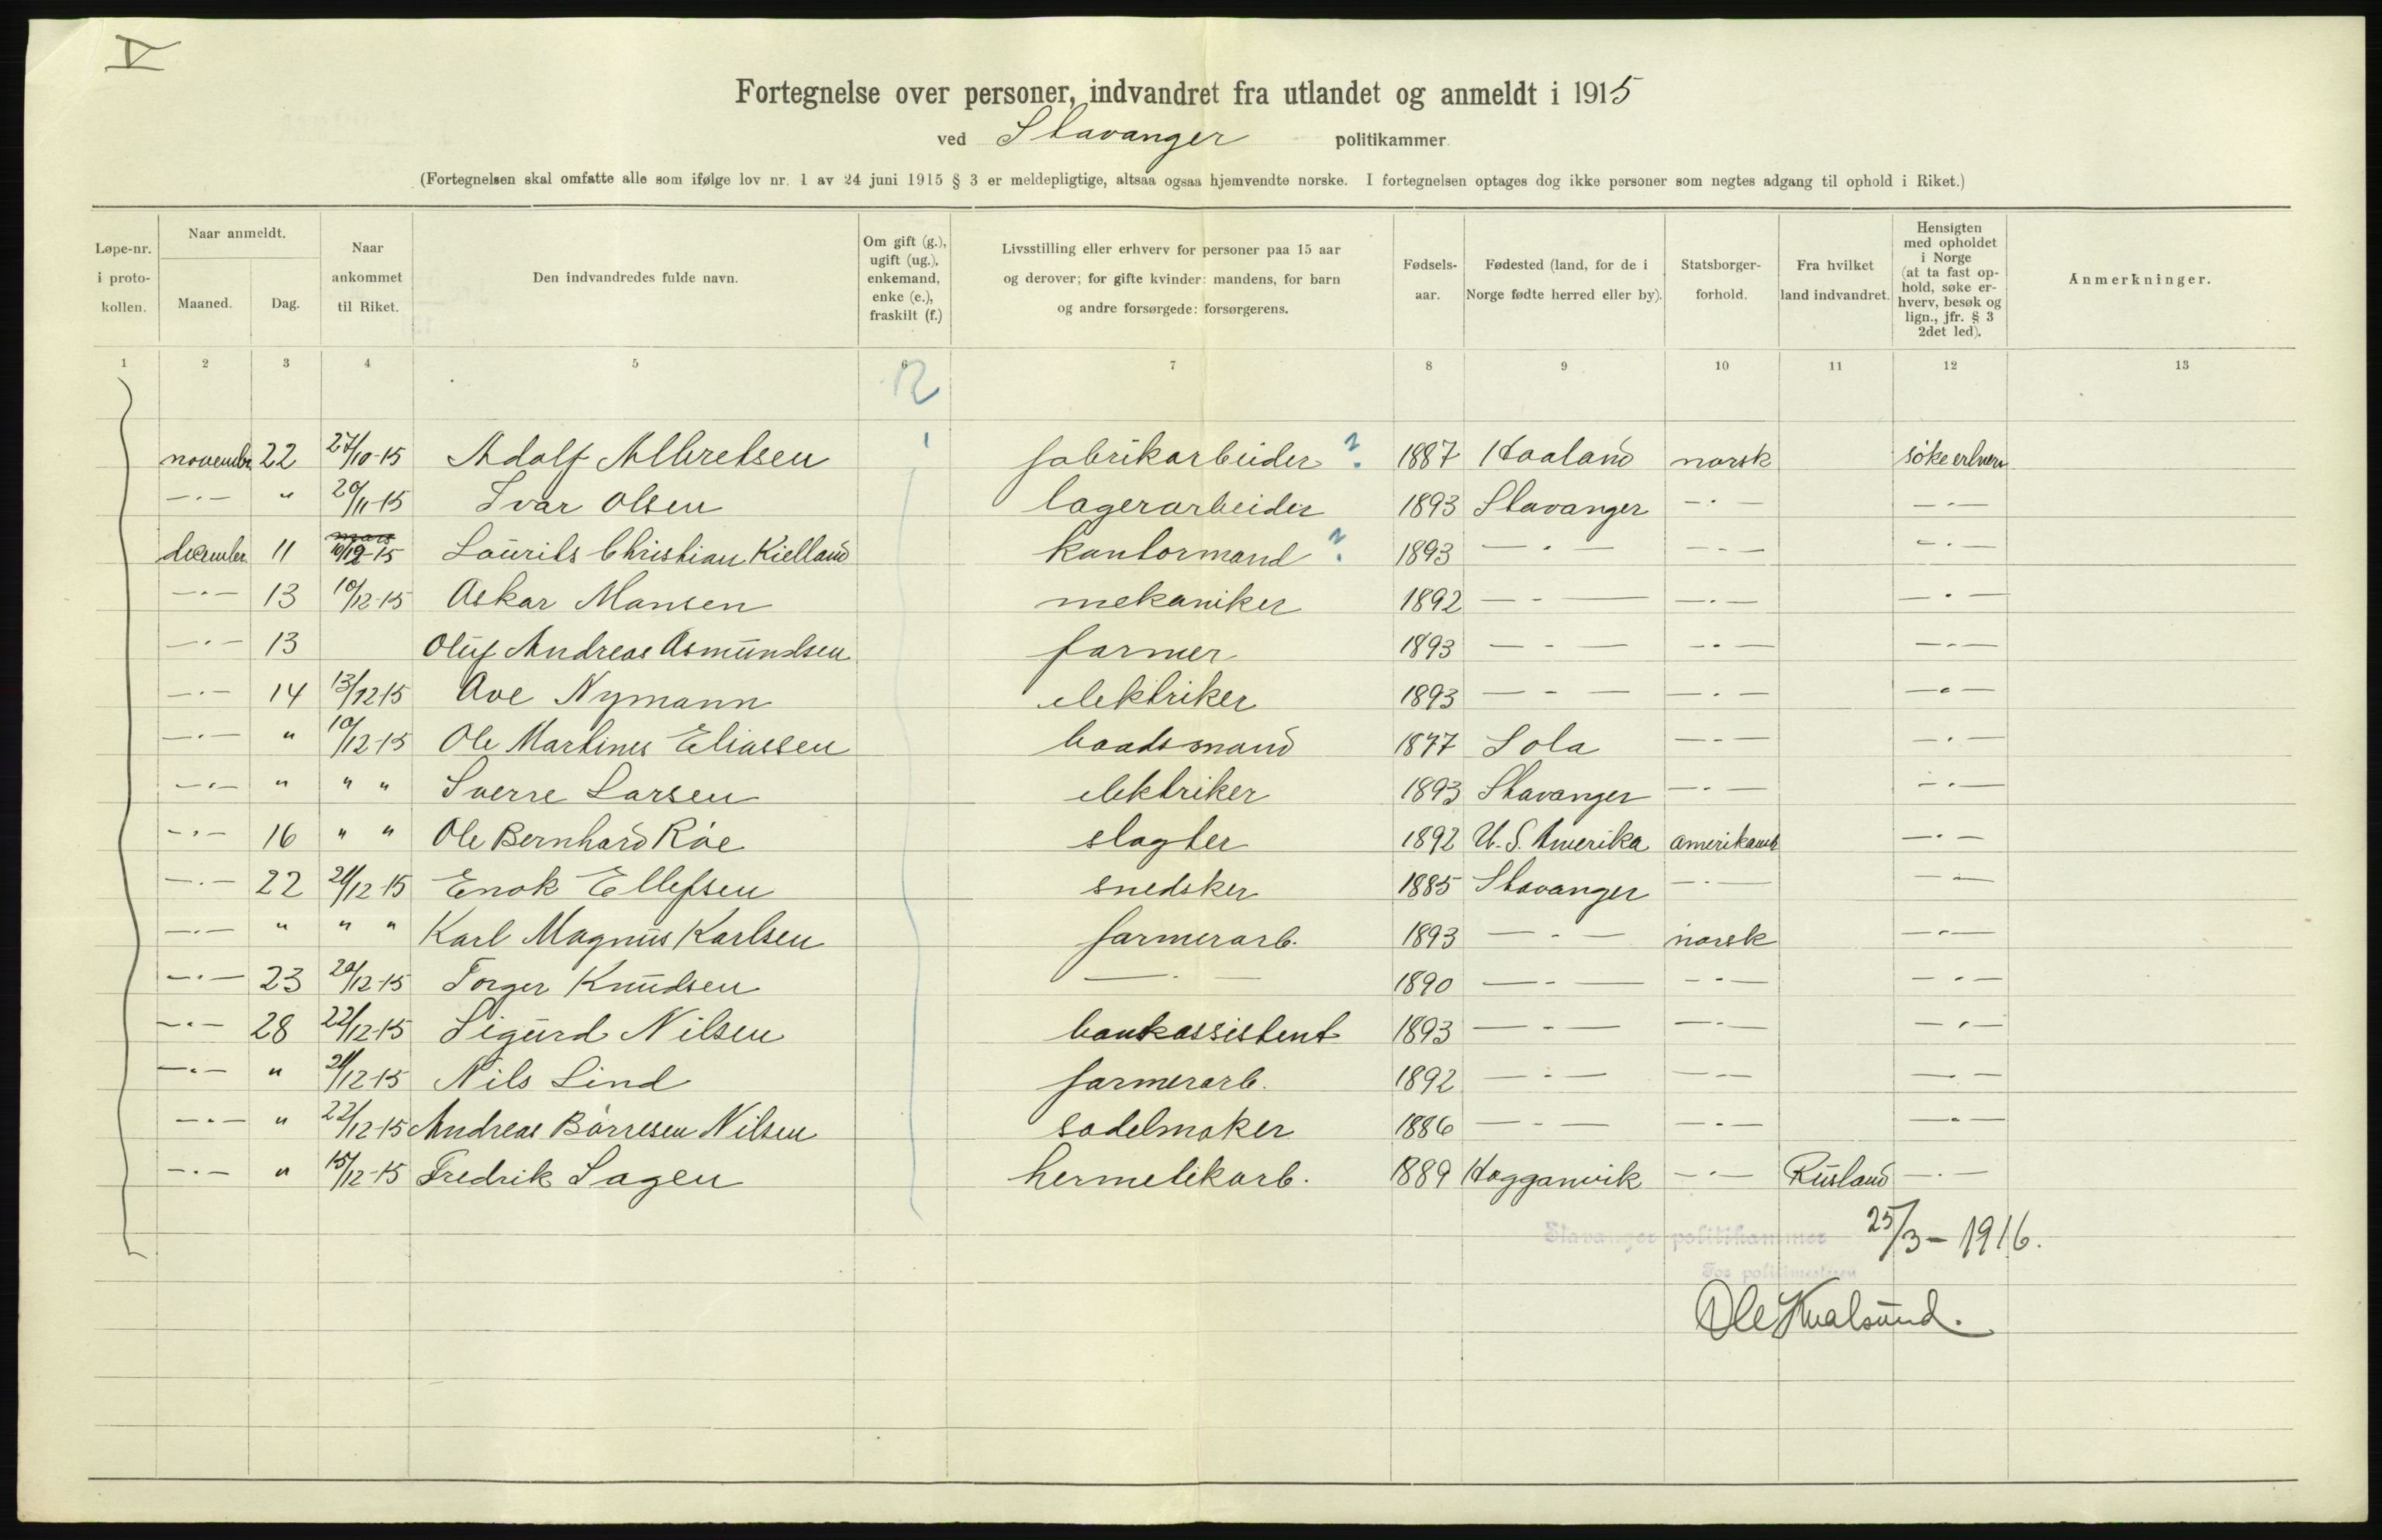 V
Fortegnelse over personer, indvandret fra utlandet og anmeldt i 1915
ved Stavanger politikammer
(Fortegnelsen skal omfatte alle som ifølge lov nr. 1 av 24 juni 1915 § 3 er meldepligtige, altsaa ogsaa hjemvendte norske. I fortegnelsen optages dog ikke personer som negtes adgang til ophold i Riket.)
Løpe-nr. i proto- kollen.
Naar anmeldt.
Maaned.
Dag.
Naar ankommet til Riket.
Den indvandredes fulde navn.
Om gift (g.), ugift (ug.), enkemand, enke (e.), fraskilt (f.)
Livsstilling eller erhverv for personer paa 15 aar og derover; for gifte kvinder: mandens, for barn og andre forsørgede: forsørgerens.
Fødsels- aar.
Fødested (land, for de i Norge fødte herred eller by).
Statsborger- forhold.
Fra hvilket land indvandret.
Hensigten med opholdet i Norge (at ta fast op- hold, søke er- hverv, besøk og lign., jfr. § 3 2det led).
Anmerkninger.
1 2 3 4 5 6 7 8 9 10 11 12 13
november 22 27/10-15 Adolf Albretsen fabrikarbeider ? 1887 Haaland norsk søke erhverv
—·— " 20/11-15 Ivar Olsen lagerarbeider 1893 Stavanger —·— —·—
december 11 mars 10/12-15 Laurits Christian Kielland kontormand ? 1893 —·— —·— —·—
—·— 13 10/12-15 Oskar Monsen mekaniker 1892 —·— —·— —·—
—·— 13 Oluf Andreas Asmundsen farmer 1893 —·— —·— —·—
—·— 14 13/12-15 Ove Nymann elektriker 1893 —·— —·— —·—
—·— " 10/12-15 Ole Martines Eliassen baadsmand 1877 Sola —·— —·—
—·— " " " Sverre Larsen elektriker 1893 Stavanger —·— —·—
—·— 16 " " Ole Bernhard Röe slagter 1892 U.S. Amerika amerikansk —·—
—·— 22 21/12 15 Enok Ellefsen snedsker 1885 Stavanger —·— —·—
—·— " " " Karl Magnus Karlsen farmerarb. 1893 —·— norsk —·—
—·— 23 20/12-15 Torger Knudsen —·— 1890 —·— —·— —·—
—·— 28 22/12-15 Sigurd Nilsen bankassistent 1893 —·— —·— —·—
—·— " 21/12-15 Nils Lind farmerarb. 1892 —·— —·— —·—
—·— " 22/12-15 Andreas Börresen Nilsen sadelmaker 1886 —·— —·— —·—
—·— " 15/12-15 Fredrik Sagen hermetikarb. 1889 Hogganvik —·— Rusland —·—
Stavanger politikammer 25/3-1916.
For politimesteren
Ole Kvalsund.